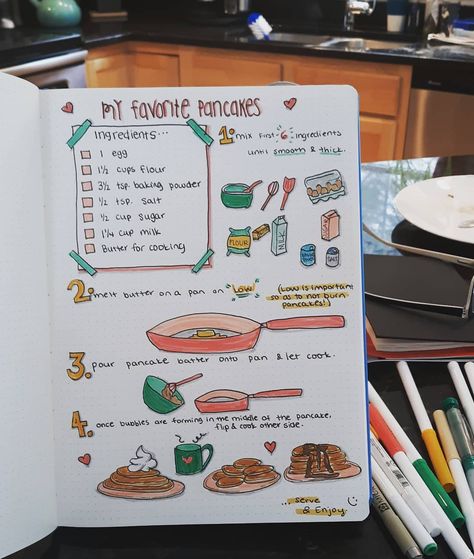 My favorite Pancakes
Ingredients...
1 egg
1½ cups flour
3½ tsp. baking powder
½ tsp. salt
½ cup sugar
1¼ cup milk
Butter for cooking
1. mix first 6 ingredients
until smooth & thick.
FLOUR
MILK
SALT
2. melt butter on a pan on "Low"
(Low is important
so as to not burn
pancakes!)
3. pour pancake batter onto pan & let cook.
4. once bubbles are forming in the middle of the pancake,
flip & cook other side.
... serve
& Enjoy